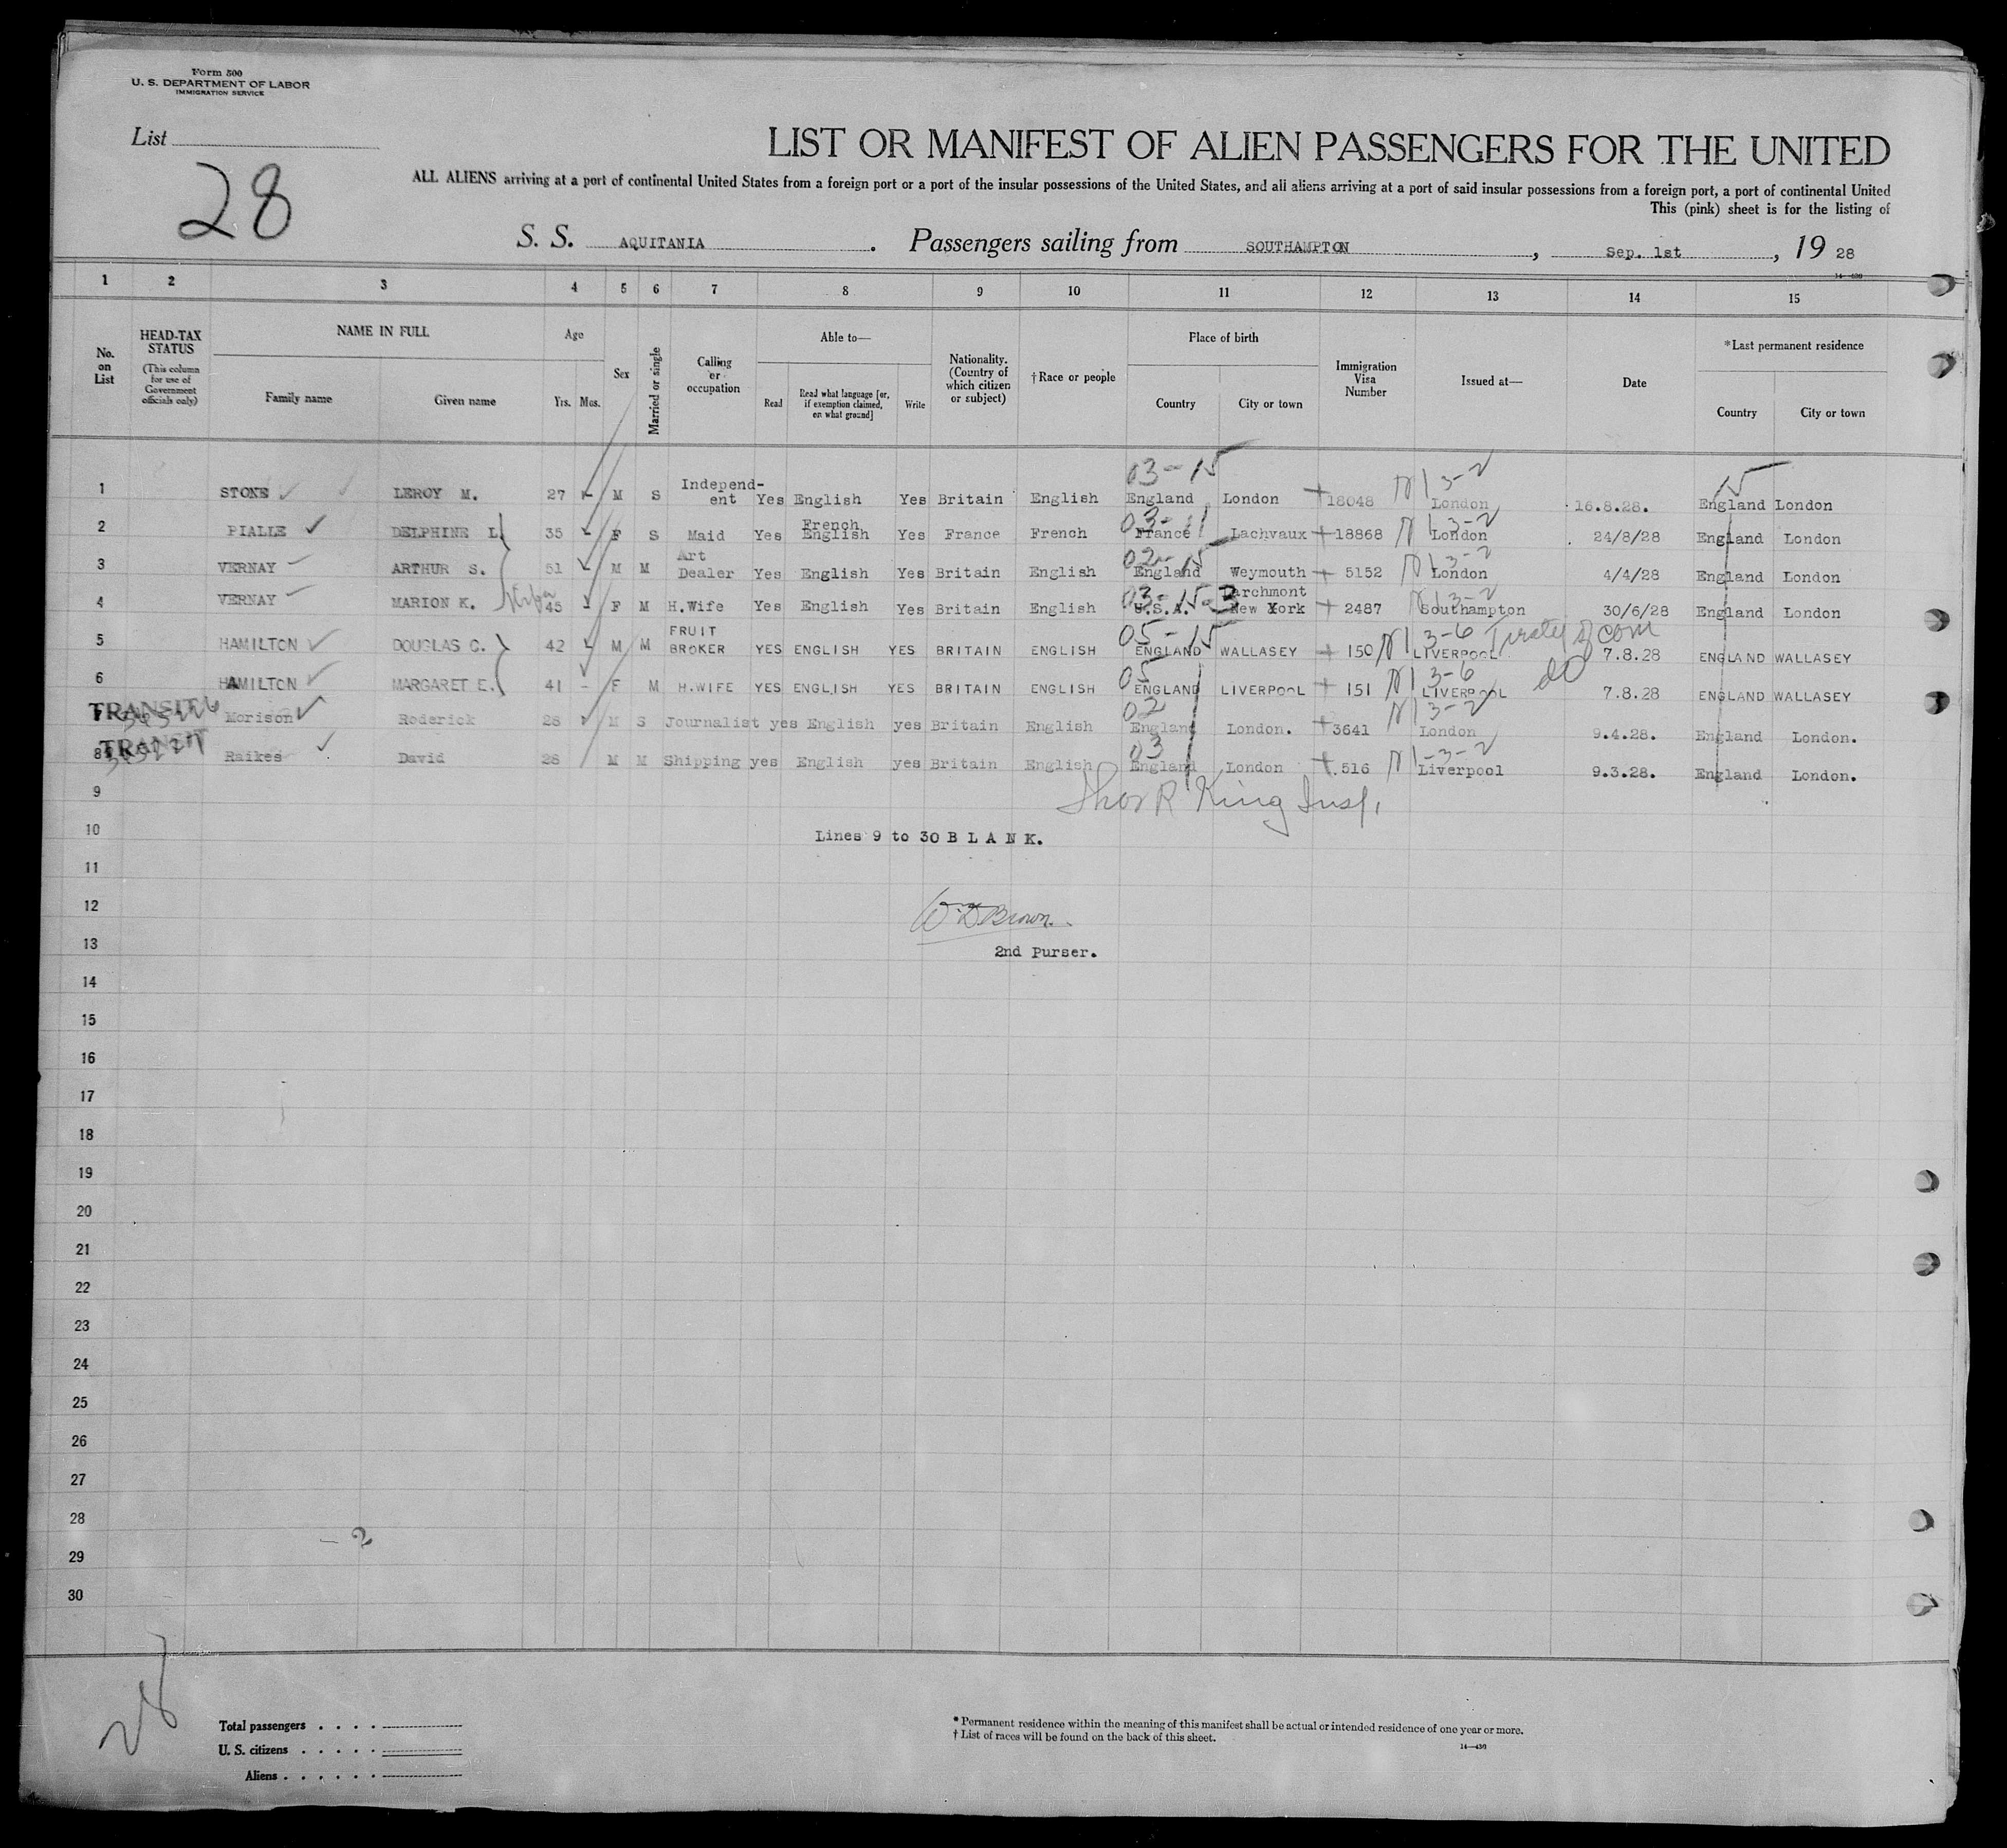 Form 500
U. S. DEPARTMENT OF LABOR
IMMIGRATION SERVICE
List
28
LIST OR MANIFEST OF ALIEN PASSENGERS FOR THE UNITED
ALL ALIENS arriving at a port of continental United States from a foreign port or a port of the insular possessions of the United States, and all aliens arriving at a port of said insular possessions from a foreign port, a port of continental United
This (pink) sheet is for the listing of
S. S. AQUITANIA. Passengers sailing from SOUTHAMPTON, Sep. 1st, 19 28
14—430
1 2 3 4 5 6 7 8 9 10 11 12 13 14 15
No. on List
HEAD-TAX STATUS
(This column for use of Government officials only)
NAME IN FULL
Family name Given name
Age
Yrs. Mos.
Sex
Married or single
Calling or occupation
Able to—
Read Read what language [or, if exemption claimed, on what ground] Write
Nationality. (Country of which citizen or subject)
†Race or people
Place of birth
Country City or town
Immigration Visa Number
Issued at—
Date
*Last permanent residence
Country City or town
03-15 N 3-2 15
1 STONE LEROY M. 27 M S Independ-ent Yes English Yes Britain English England London 18048 London 16.8.28. England London
03-11 N 3-2
2 PIALLE DELPHINE L. 35 F S Maid Yes French English Yes France French France Lachvaux 18868 London 24/8/28 England London
02-15 N 3-2
3 VERNAY ARTHUR S. 51 M M Art Dealer Yes English Yes Britain English England Weymouth 5152 London 4/4/28 England London
03-15-3 N 3-2
4 VERNAY MARION K. 45 F M H.Wife Yes English Yes Britain English U.S.A. Larchmont New York 2487 Southampton 30/6/28 England London
05-15 N 3-6 Treaty of com
5 HAMILTON DOUGLAS C. 42 M M FRUIT BROKER YES ENGLISH YES BRITAIN ENGLISH ENGLAND WALLASEY 150 LIVERPOOL 7.8.28 ENGLAND WALLASEY
05 N 3-6 do
6 HAMILTON MARGARET E. 41 - F M H.WIFE YES ENGLISH YES BRITAIN ENGLISH ENGLAND LIVERPOOL 151 LIVERPOOL 7.8.28 ENGLAND WALLASEY
TRANSIT 02 N 3-2
7 Morison Roderick 28 M S Journalist yes English yes Britain English England London. 3641 London 9.4.28. England London.
TRANSIT 03 N 3-2
8 Raikes David 28 M M Shipping yes English yes Britain English England London 516 Liverpool 9.3.28. England London.
9
Thos R King Insp.
10
Lines 9 to 30 B L A N K.
11
12
W. D Brown.
13
2nd Purser.
14
15
16
17
18
19
20
21
22
23
24
25
26
27
28
2
29
30
28
Total passengers . . . .
U. S. citizens . . . . .
Aliens . . . . . .
* Permanent residence within the meaning of this manifest shall be actual or intended residence of one year or more.
† List of races will be found on the back of this sheet.
14—430